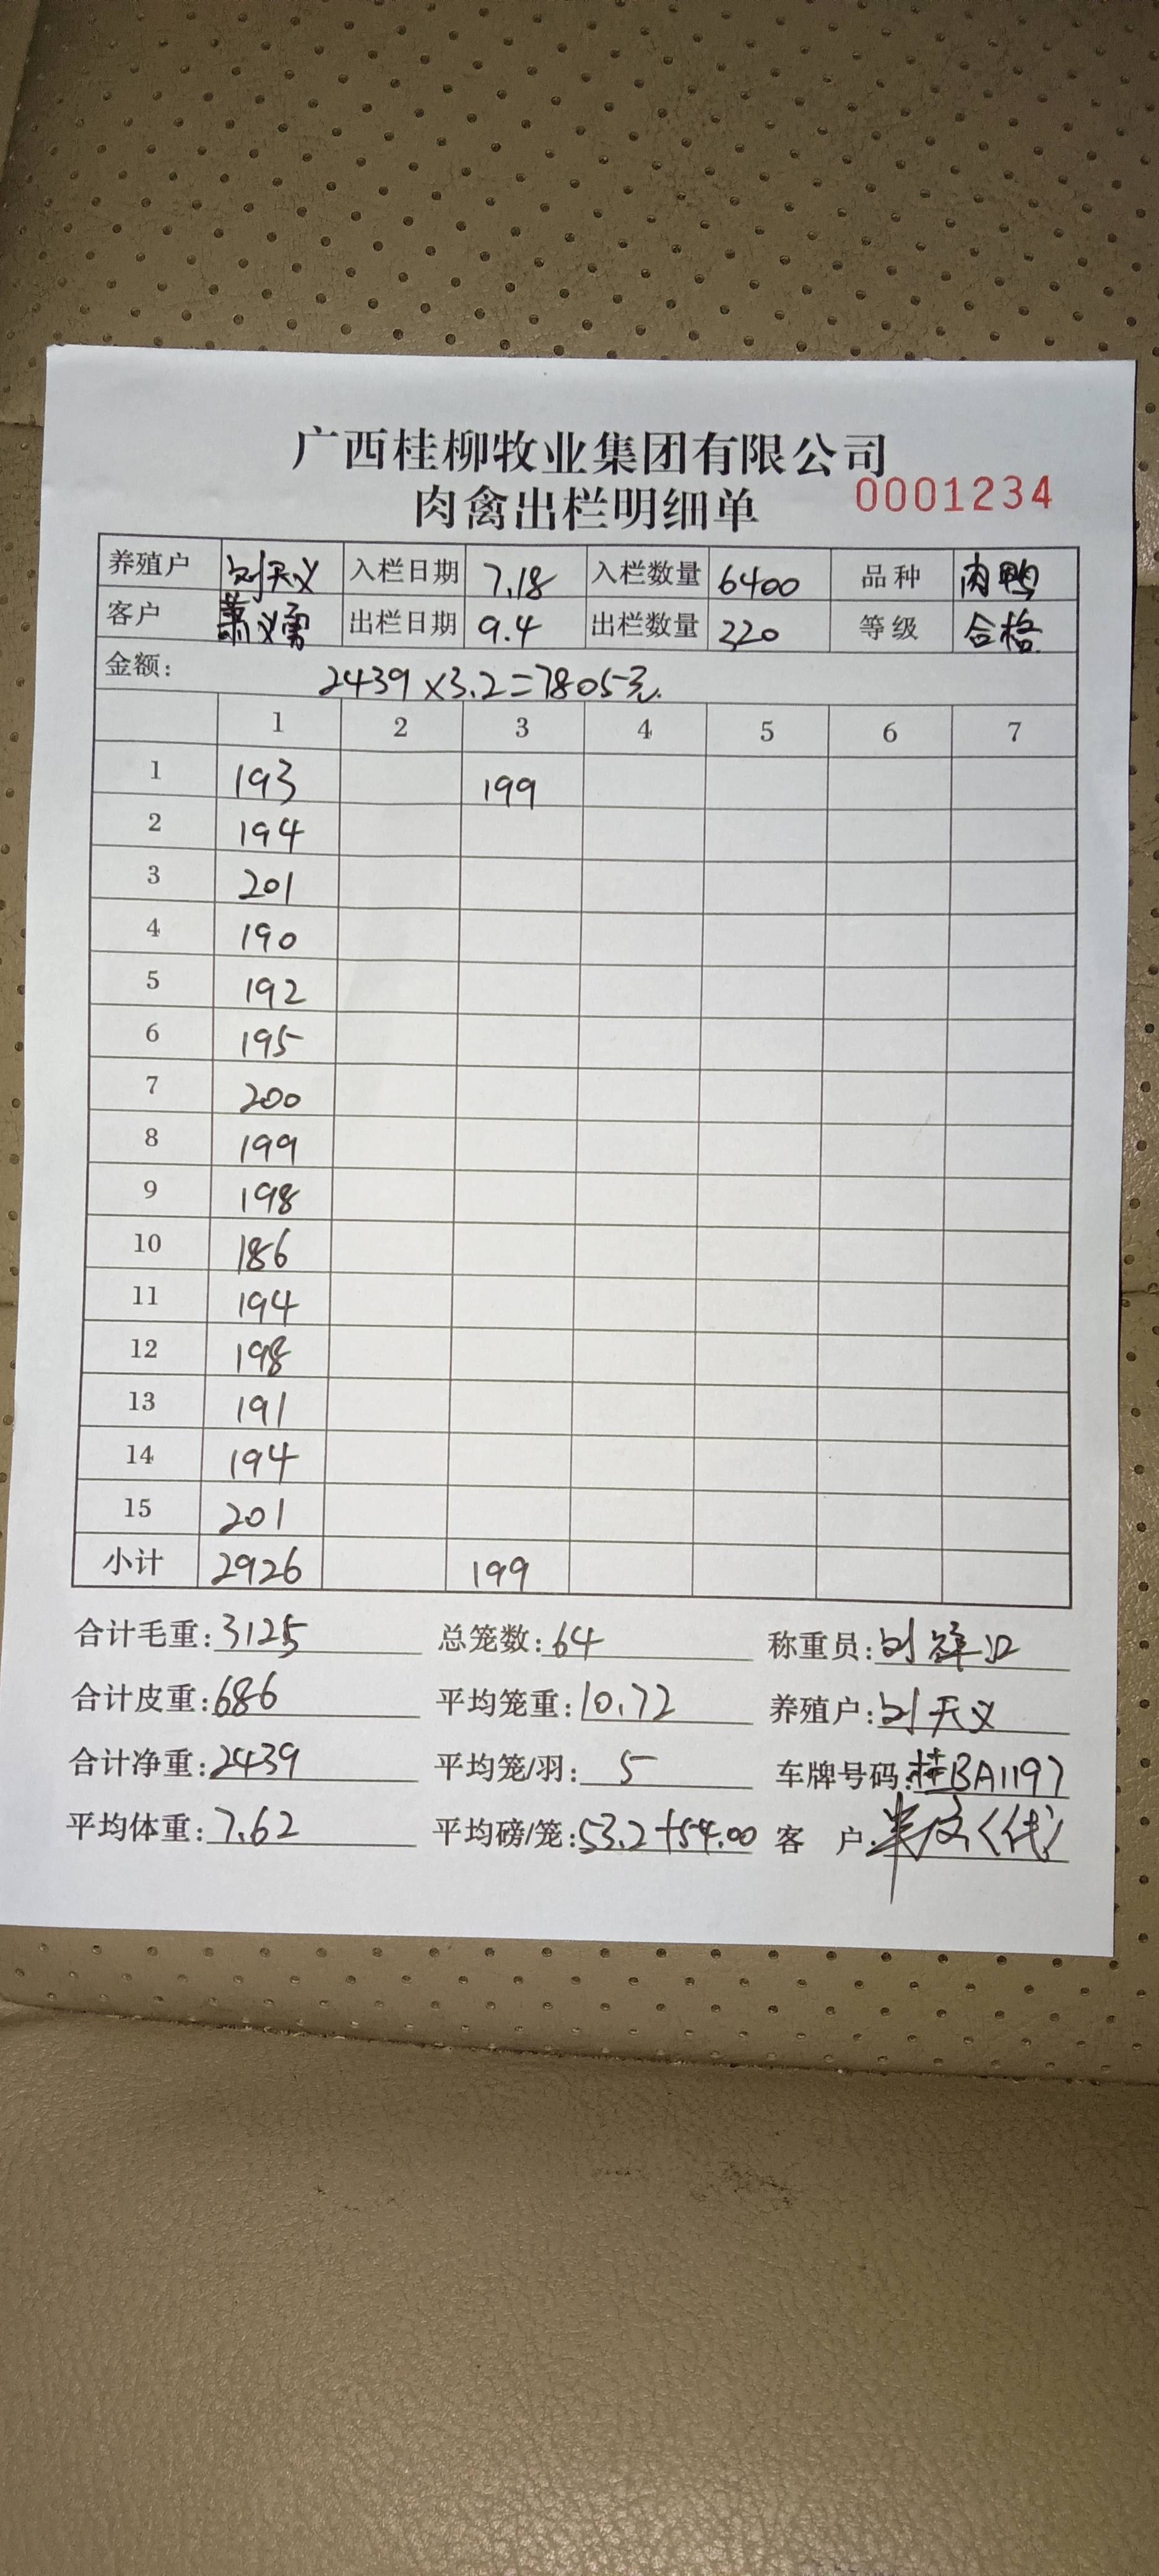 广西桂柳牧业集团有限公司
肉禽出栏明细单 0001234
养殖户 刘天义 入栏日期 7.18 入栏数量 6400 品种 肉鸭
客户 萧义勇 出栏日期 9.4 出栏数量 320 等级 合格
金额: 2439×3.2=7805元.
1 2 3 4 5 6 7
1 193 199
2 194
3 201
4 190
5 192
6 195
7 200
8 199
9 198
10 186
11 194
12 198
13 191
14 194
15 201
小计 2926 199
合计毛重:3125 总笼数:64 称重员:刘
合计皮重:686 平均笼重:10.72 养殖户:刘天义
合计净重:2439 平均笼/羽: 5 车牌号码:桂BA1197
平均体重:7.62 平均磅/笼:53.2+54.00 客 户: (代)